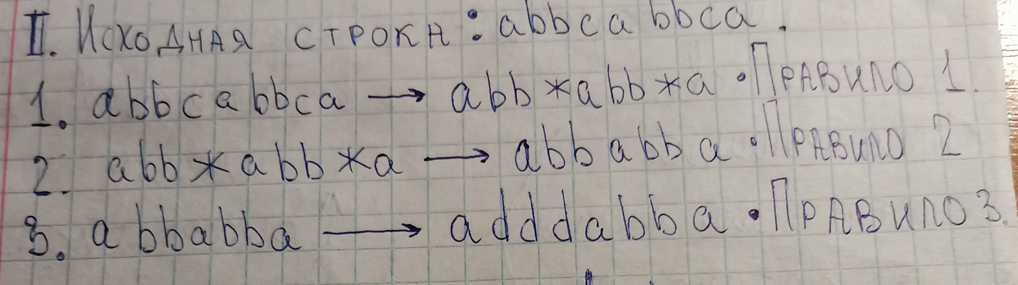 II. Исходная строка: abbcabbca.
1. abbcabbca → abb*abb*a • Правило 1.
2. abb*abb*a → abbabba • Правило 2
3. abbabba → adddabba • Правило 3.